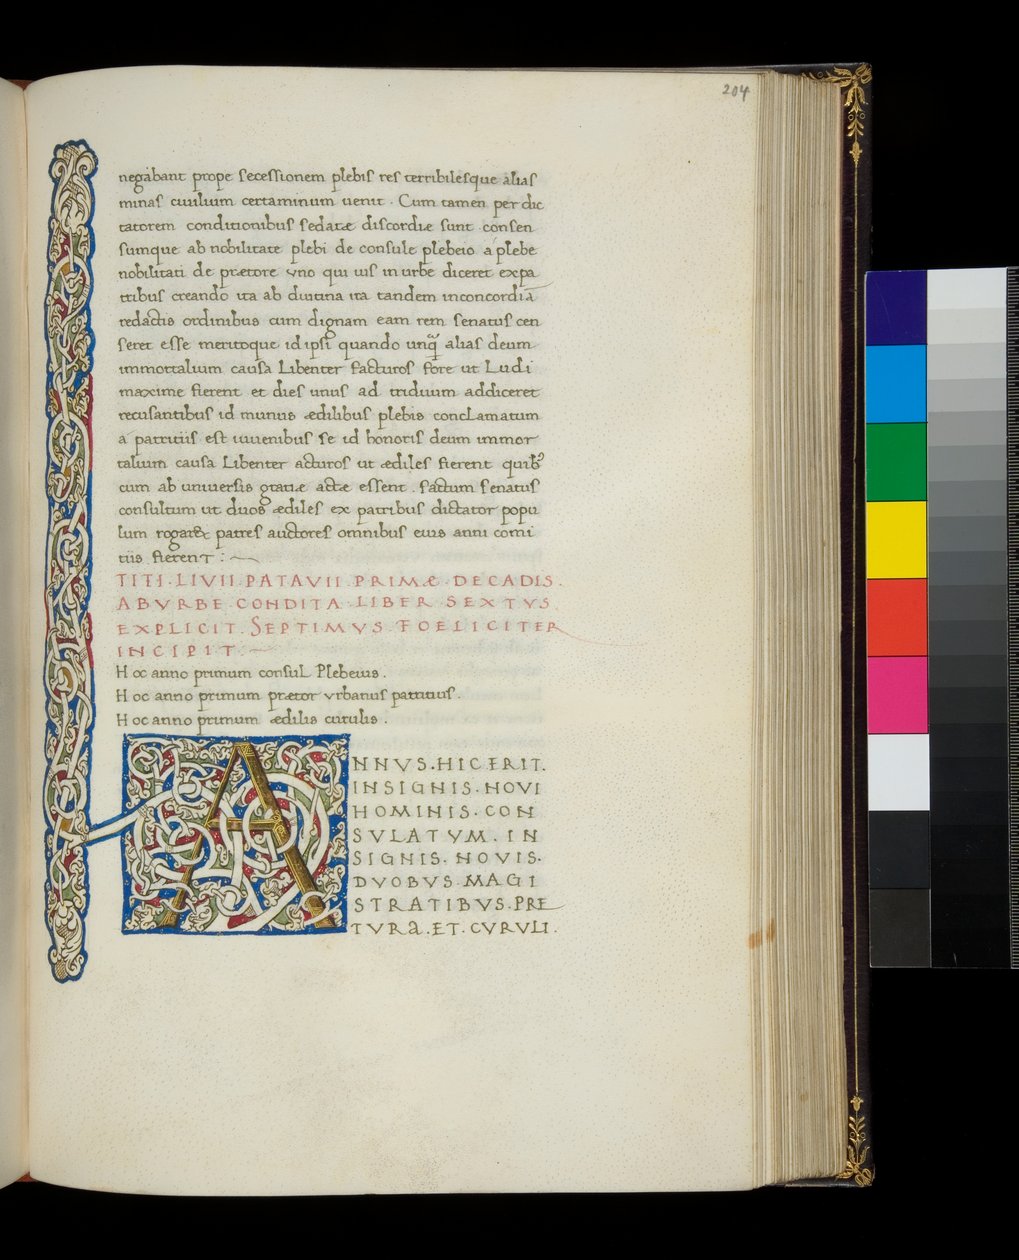 204
negabant prope secessionem plebis res terribilesque alias
minas ciuilium certaminum uenit · Cum tamen per dic
tatorem conditionibus sedatæ discordie sunt consen
sumque ab nobilitate plebi de consule plebeio a plebe
nobilitati de prætore vno qui ius in urbe diceret ex pa
tribus creando ita ab diutina ira tandem inconcordia
redactis ordinibus cum dignam eam rem senatus cen
seret esse meritoque id ipsi quando unq̃ alias deum
immortalium causa Libenter facturos fore ut Ludi
maxime fierent et dies unus ad triduum addiceret
recusantibus id munus ædilibus plebis conclamatum
a patritiis est iuuenibus se id honoris deum immor
talium causa Libenter acturos ut ædiles fierent quibꝰ
cum ab uniuersis gratiæ actæ essent . factum senatus
consultum ut duos ædiles ex patribus dictator popu
lum rogar& patres auctores omnibus eius anni comi
tiis fierenT :
TITI · LIVII · PATAVII · PRIMæ · DECADIS .
ABVRBE · CONDITA · LIBER SEXTVS
EXPLICIT . SEPTIMVS · FOELICITER
INCIPIT :
Hoc anno primum consuL Plebeius .
Hoc anno primum prætor vrbanus patritius .
Hoc anno primum ædilis curulis .
ANNVS . HIC ERIT .
INSIGNIS . NOVI
HOMINIS . CON
SVLATVM . IN
SIGNIS . NOVIS .
DVOBVS . MAGI
STRATIBVS . PRE
TVRa . ET . CVRVLI .